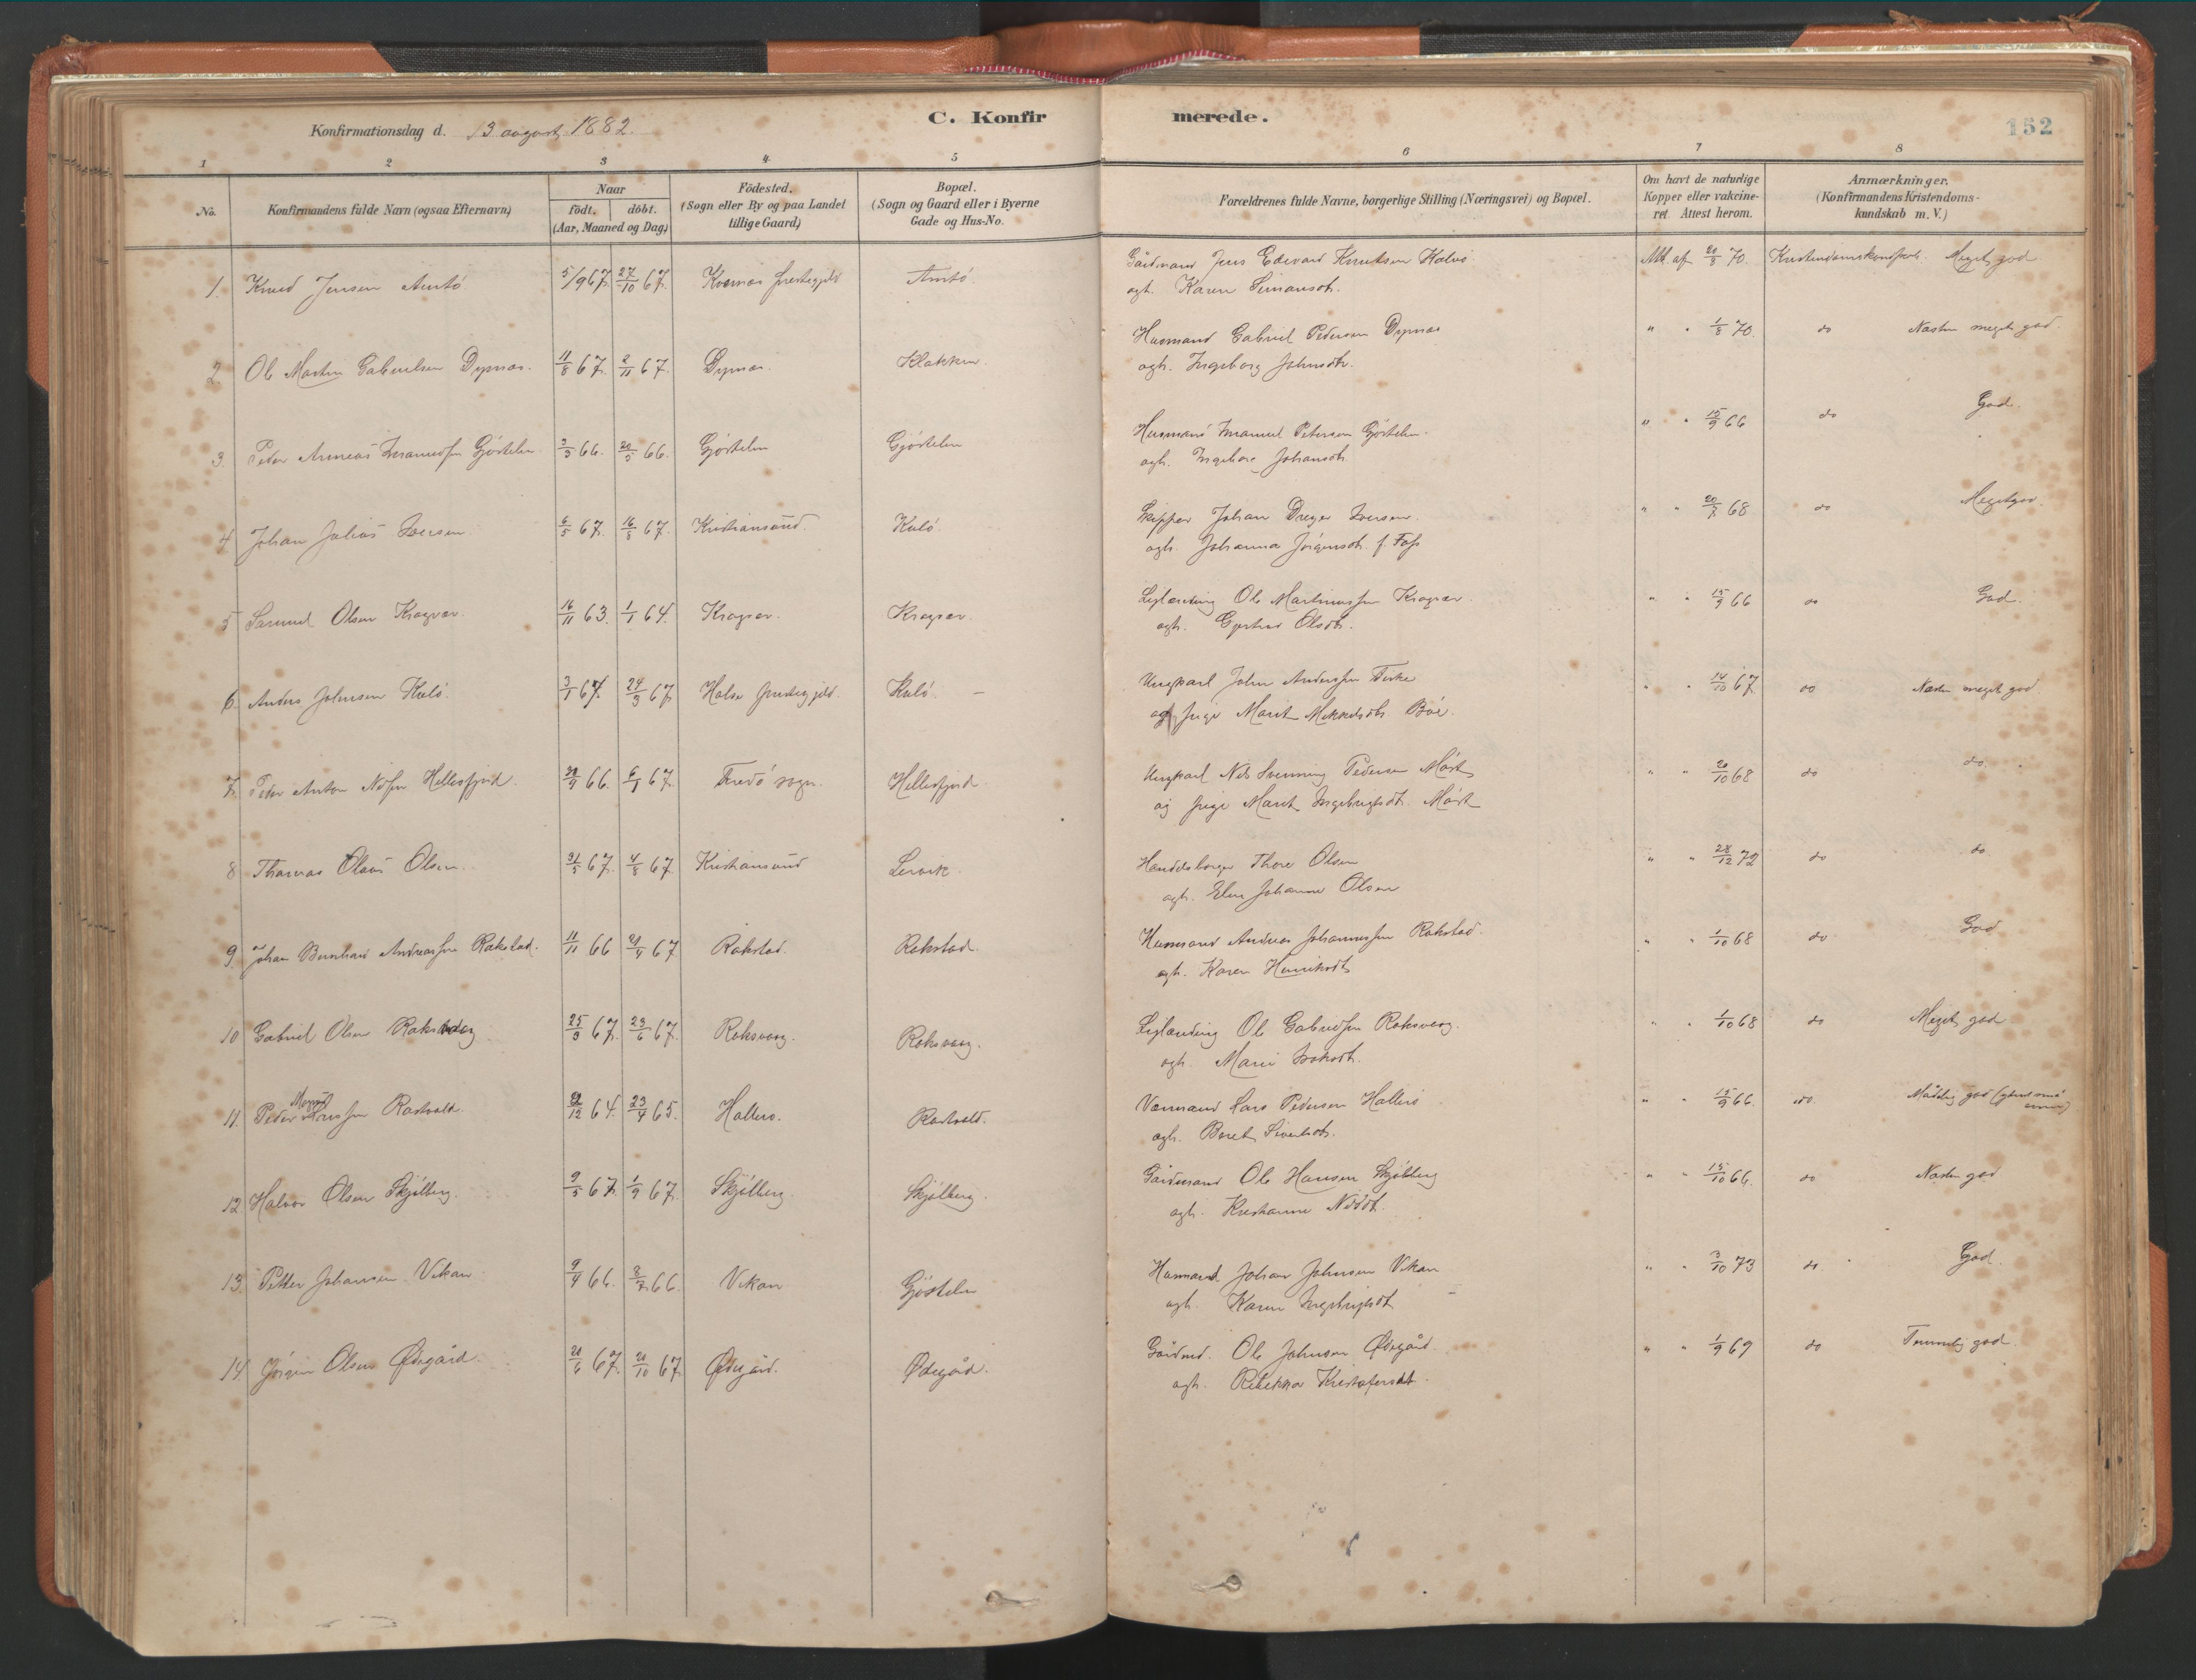 Konfirmationsdag d. 13 august 1882.
C. Konfirmerede.
152
1 2 3 4 5 6 7 8
No.
Konfirmandens fulde Navn (ogsaa Efternavn)
Naar
födt. döbt.
(Aar, Maaned og Dag)
Födested.
(Sogn eller By og paa Landet
tillige Gaard)
Bopæl.
(Sogn og Gaard eller i Byerne
Gade og Hus-No.
Forældrenes fulde Navne, borgerlige Stilling (Næringsvei) og Bopæl.
Om havt de naturlige
Kopper eller vakcine-
ret. Attest herom.
Anmærkninger.
(Konfirmandens Kristendoms-
kundskab m. V.)
1. Knud Jensen 5/9 67. 27/10 67. Kvernes Arntö Gårdmand Jens Edevard Knutsen Att. af 20/8 70. Kristendomskundskab Meget god
ogh. Karen Simonsdt.
2 Ole Martin Gabrielsen Dyrnæs. 11/8 67. 2/11 67. Dyrnæs. Klakken. Husmand Gabriel Pedersen Dyrnæs " " 1/8 70. do Næsten meget god.
ogh. Ingeborg Johnsdt.
3. Peder Gjöstelen 66. 66. Gjöstelen Gjöstelen Husmand Petersen Gjöstelen " " 15/9 66 do God.
ogh. Johansdt.
4 Johan Julius Iversen 6/5 67. 16/5 67. Kristiansund. Kulö. Skipper Johan Dreyer Iversen " " 68 do Meget god.
ogh. Johanna Jörgensdt. f. Foss
5 Samuel Olsen Kragvær 16/11 63. 1/1 64. Kragvær. Kragvær. Leilænding Ole Martinussen Kragvær. " " 15/9 66 do God.
ogh. Gjertrud Olsdt.
6. Anders Johnsen Kulö. 3/1 67. 24/3 67. Halse Kulö. Ungkarl John Anderssen " " 14/10 67 do Næsten meget god.
og pige Marit
7. Peter Anton Nilssen Hellesfjord. 66. 67. Fredö sogn. Hellesfjord. Ungkarl Nils Pedersen " " 20/10 68 do do.
og pige Marit Ingebrigtsdt.
8 Thomas Olaus Olsen. 31/5 67. 4/8 67 Kristiansund Lervik. Handelsborger Thore Olsen " " 28/12 72 do do
ogh. Elen Johanne Olsen
9. Johan Bernhard Andreassen Rokstad. 11/11 66 21/4 67 Rokstad. Rokstad. Husmand Andreas Johannessen Rokstad. " " 1/10 68 do God
ogh. Karen Henriksdt.
10 Gabriel Olsen 25/3 67. 23/6 67. Roksvaag. Roksvaag. Leilænding Ole Gabrielsen Roksvaag. " " 1/10 68 do Meget god
ogh. Marie
11. Peder Larssen Rastvold. 64. 23/4 65. Hallerö. Rastvold. Lars Pedersen Hallerö " " 15/9 66. do. Mådelig god
ogh. Beret Sivertsdt.
12 Halvor Olsen Skjölberg. 9/5 67. 1/9 67. Skjölberg. Skjölberg. Gårdmand Ole Hansen Skjölberg " " 15/10 66. do Næsten god
ogh. Kristianne Nilsdt.
13. Petter Johansen Vikan 9/4 66. 8/7 66. Vikan Gjöstelen Husmand Johan Johnsen Vikan " " 3/10 73 do. God.
ogh. Karen Ingebrigtsdt.
14 Jörgen Olsen Ødegård. 20/6 67. 20/10 67. Ødegård. Ødegård. Gårdmd. Ole Johnsen Ødegård. " " 1/9 69 do Temmelig god
ogh. Rebekka Kristofersdt.